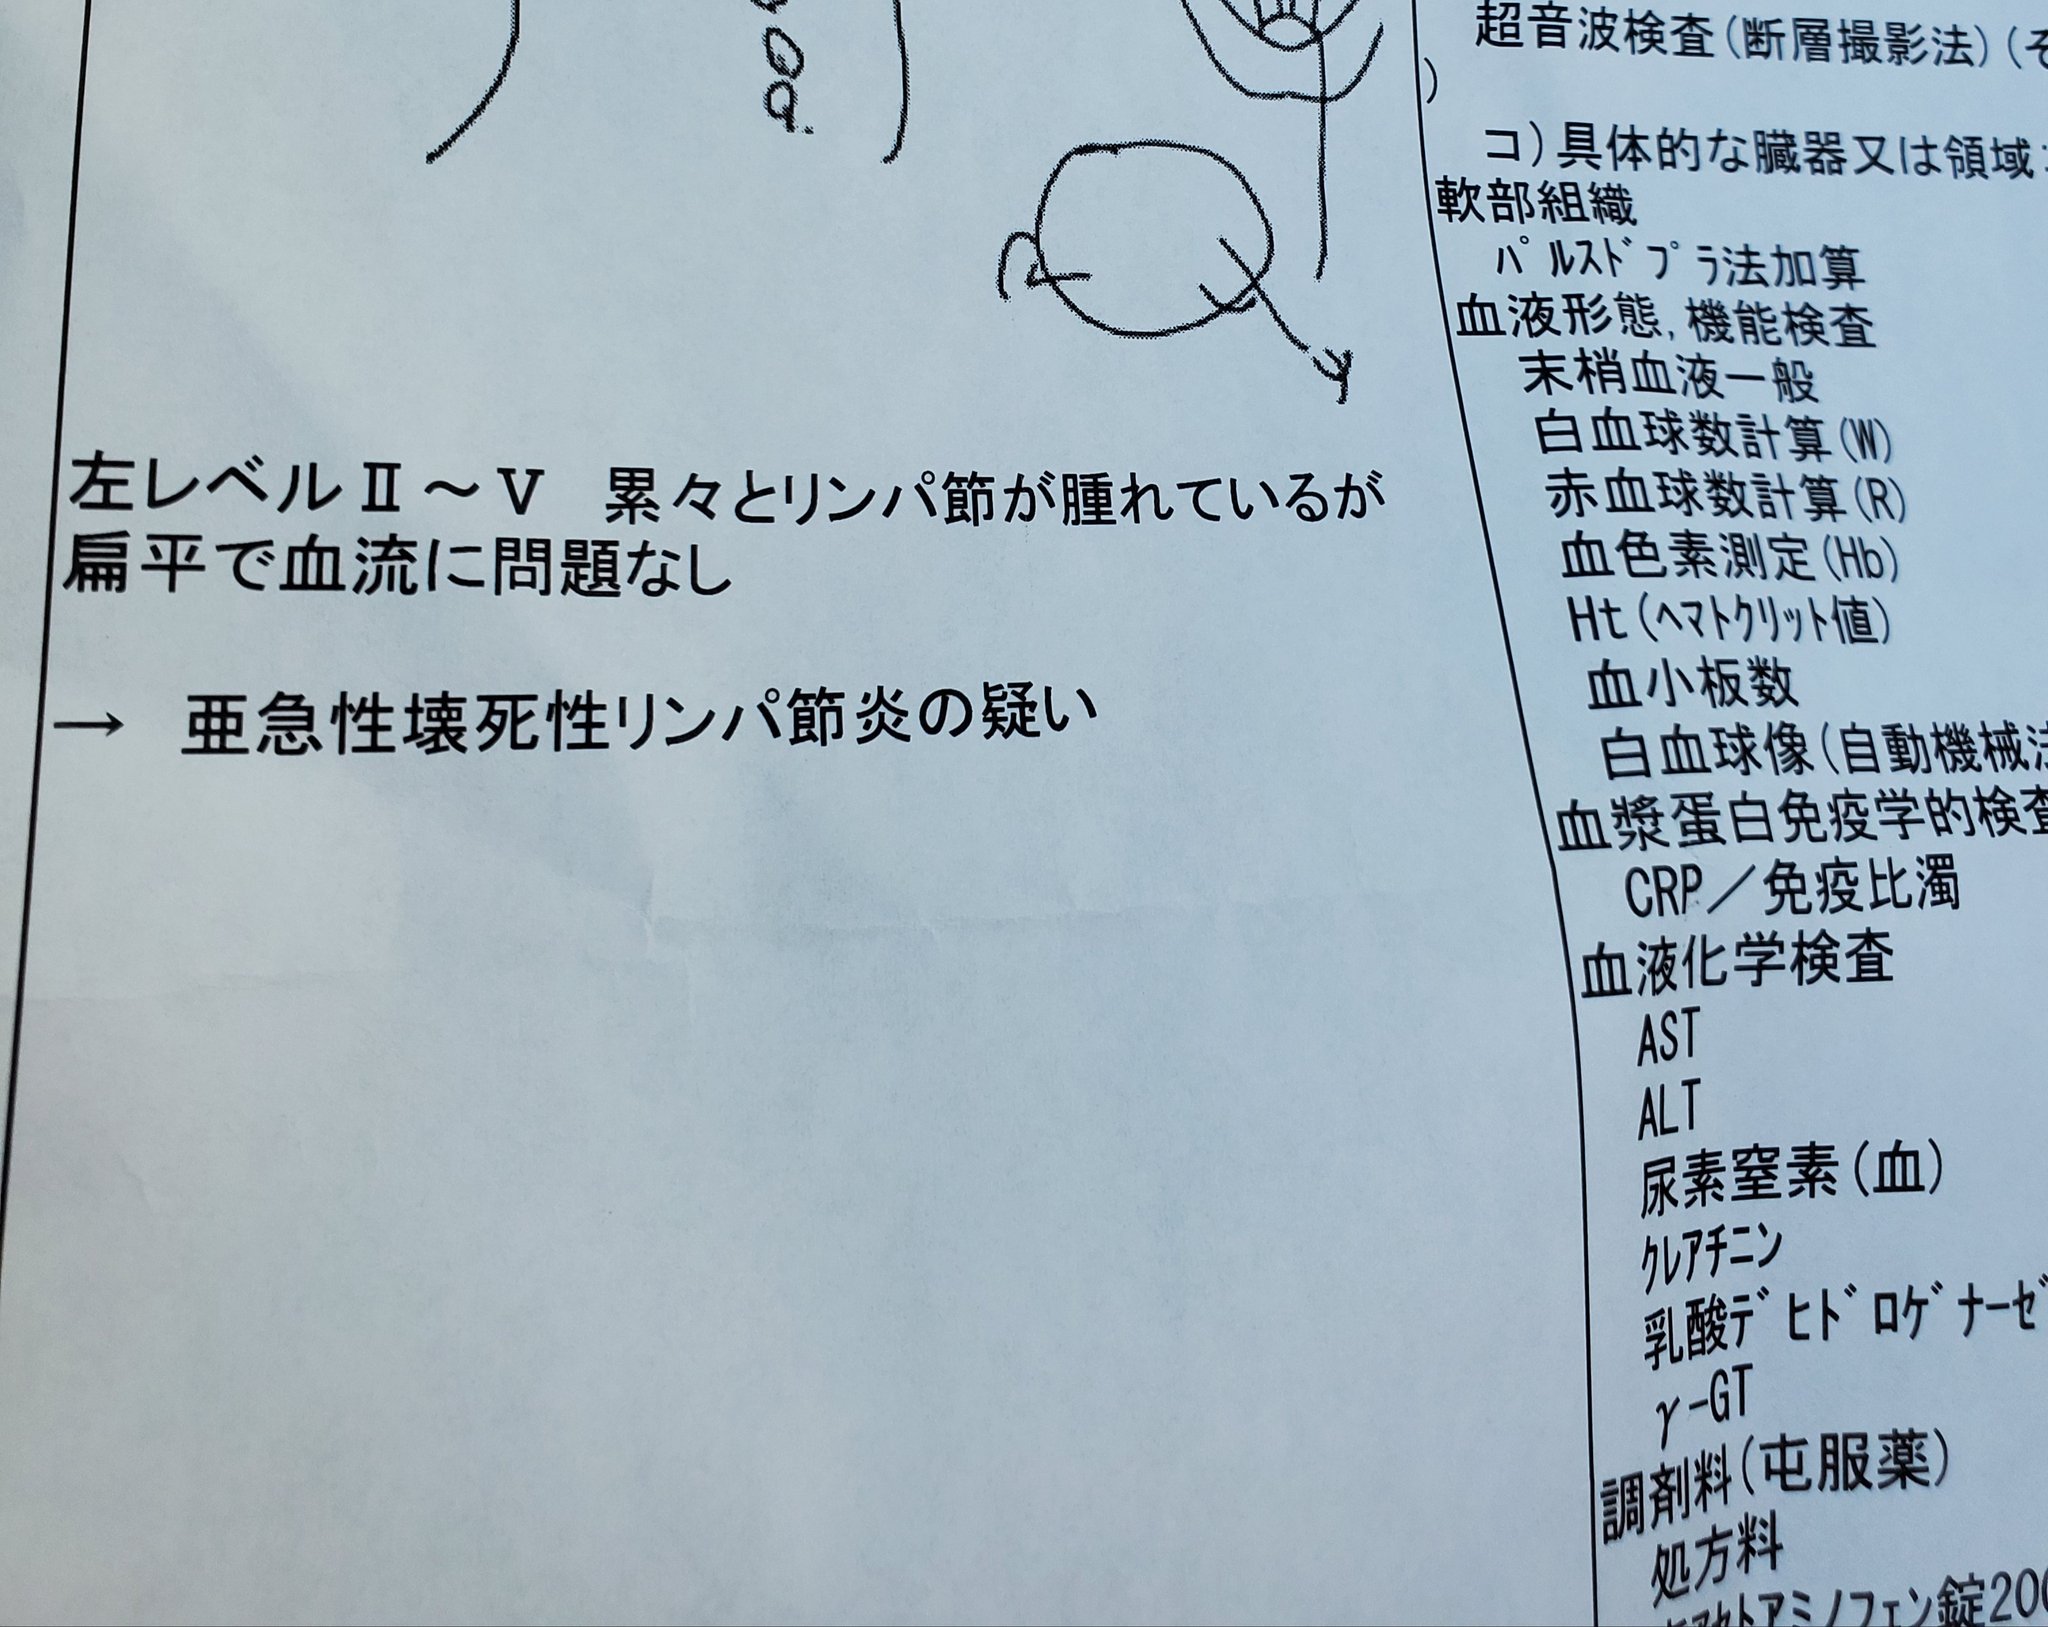 左レベルⅡ～Ⅴ　累々とリンパ節が腫れているが
扁平で血流に問題なし
→　亜急性壊死性リンパ節炎の疑い
超音波検査(断層撮影法)(そ
)
コ)具体的な臓器又は領域
軟部組織
ﾊﾟﾙｽﾄﾞﾌﾟﾗ法加算
血液形態,機能検査
末梢血液一般
白血球数計算(W)
赤血球数計算(R)
血色素測定(Hb)
Ht(ﾍﾏﾄｸﾘｯﾄ値)
血小板数
白血球像(自動機械法
血漿蛋白免疫学的検査
CRP／免疫比濁
血液化学検査
AST
ALT
尿素窒素(血)
ｸﾚｱﾁﾆﾝ
乳酸ﾃﾞﾋﾄﾞﾛｹﾞﾅｰｾﾞ
γ-GT
調剤料(屯服薬)
処方料
ｱｾﾄｱﾐﾉﾌｪﾝ錠200